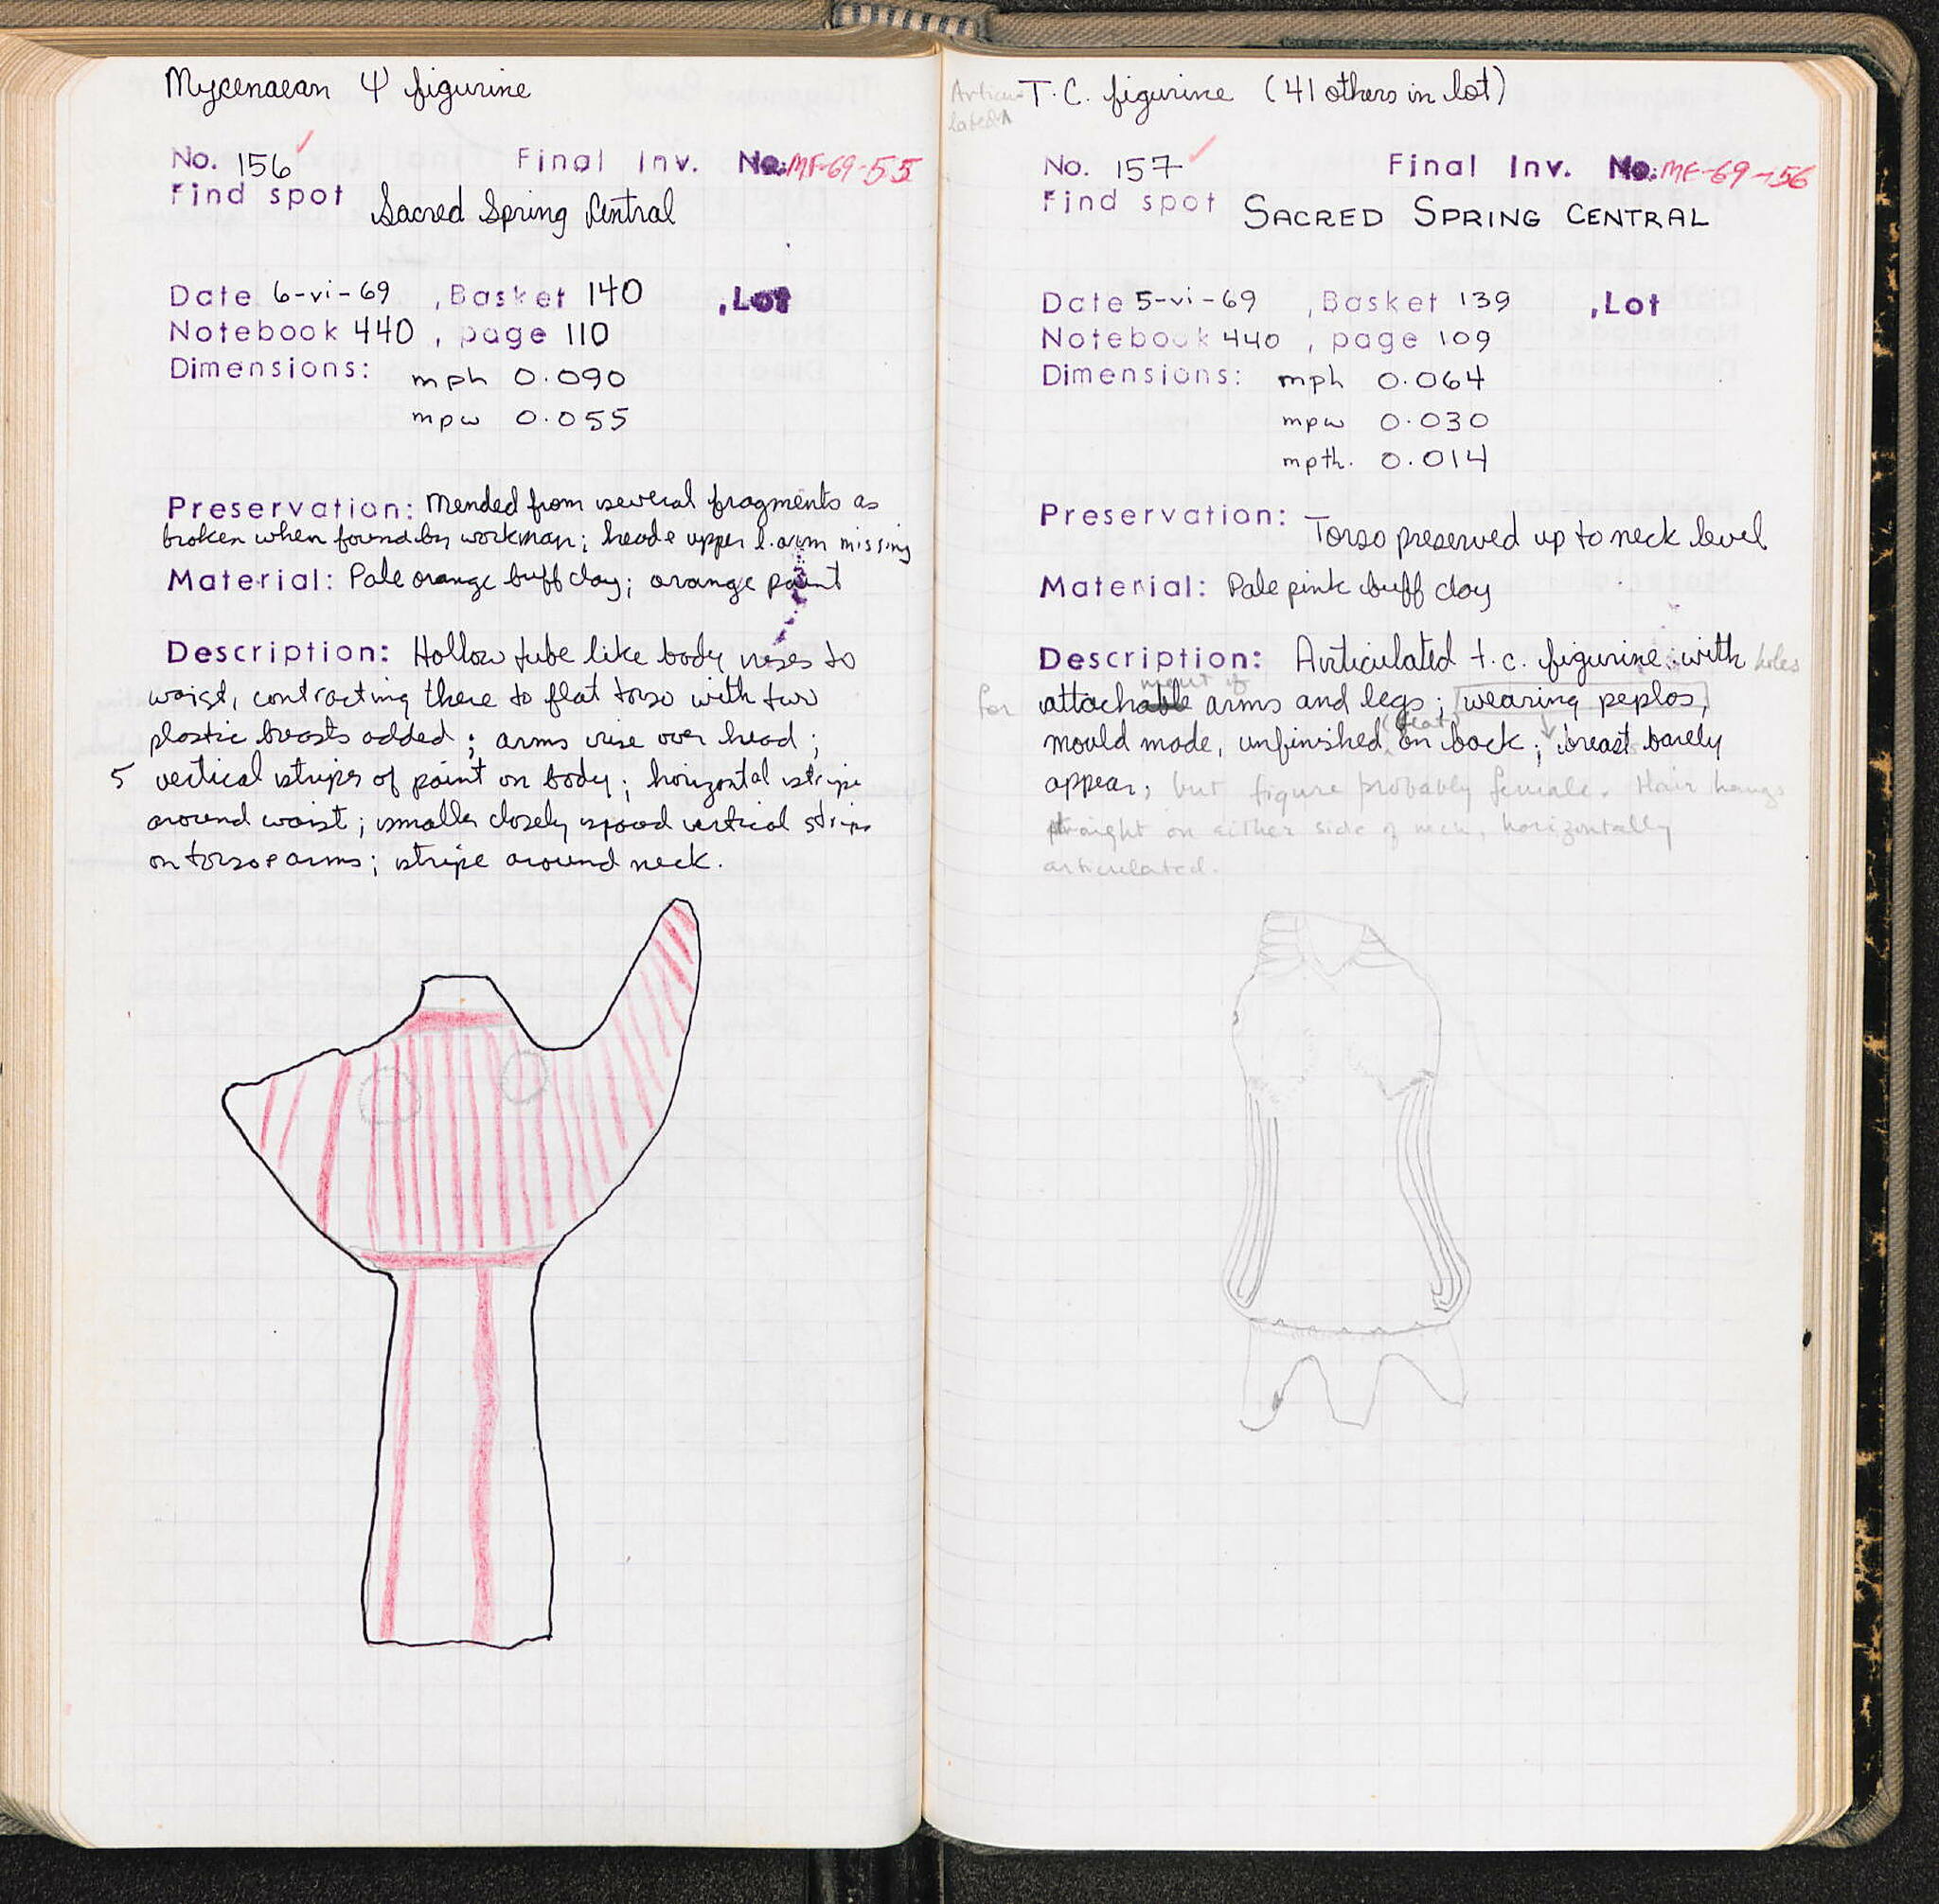 Mycenaean Ψ figurine
No. 156 ✓ Final Inv. No: MF-69-55
Find spot Sacred Spring Central
Date 6-vi-69 , Basket 140 , Lot
Notebook 440 , page 110
Dimensions: mph 0.090
mpw 0.055
Preservation: Mended from several fragments as
broken when found by workman; head & upper l. arm missing
Material: Pale orange buff clay; orange paint
Description: Hollow tube like body rises to
waist, contracting there to flat torso with two
plastic breasts added; arms rise over head;
5 vertical stripes of paint on body; horizontal stripe
around waist; smaller closely spaced vertical strips
on torso & arms; stripe around neck.
Articu-
lated ^ T.C. figurine (41 others in lot)
No. 157 ✓ Final Inv. No: MF-69-56
Find spot SACRED SPRING CENTRAL
Date 5-vi-69 , Basket 139 , Lot
Notebook 440 , page 109
Dimensions: mph 0.064
mpw 0.030
mpth. 0.014
Preservation: Torso preserved up to neck level
Material: Pale pink buff clay
Description: Articulated t.c. figurine with holes
ment of
for attachable arms and legs; wearing peplos,
(flat)
mould made, unfinished on back; breast barely
appear, but figure probably female. Hair hangs
straight on either side of neck, horizontally
articulated.